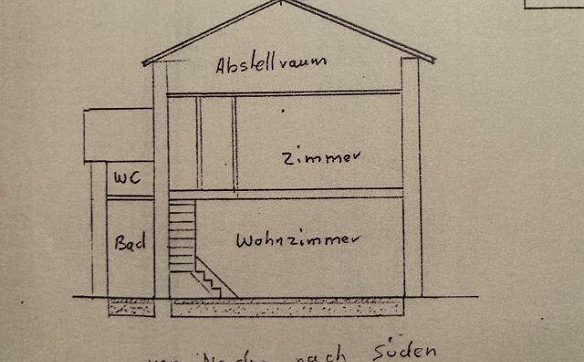 Abstellraum
Zimmer
WC
Bad
Wohnzimmer
nach Süden